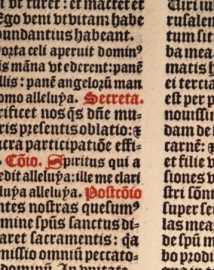 ut ruret: et mactet et
ego veni vt vitam habe
bundantius habeant.
porta celi aperuit domin⁹
is māna vt ederent: panē
llis: panē angeloꝝ man
omo alleluya. Secreta.
rificet nos q̄s dn̄e mu-
ris presentis oblatio: ꝛ
cra participatiōe effi-
. Cōio. Spiritus qui a
edit alleluya: ille me clari
luya alleluya. Postcōio
entes nostras quesum⁹
mine spūs sanctus di-
aret sacramentis: q̄a
missio omniū peccato-
Uiri iu
rusalem
tum sit
ba mea
matis h
ei tercia
est per p
nouissi
dam de
carnē:
et filie v
niores
stri sōn
super se
las mea
de spū m
bo prod